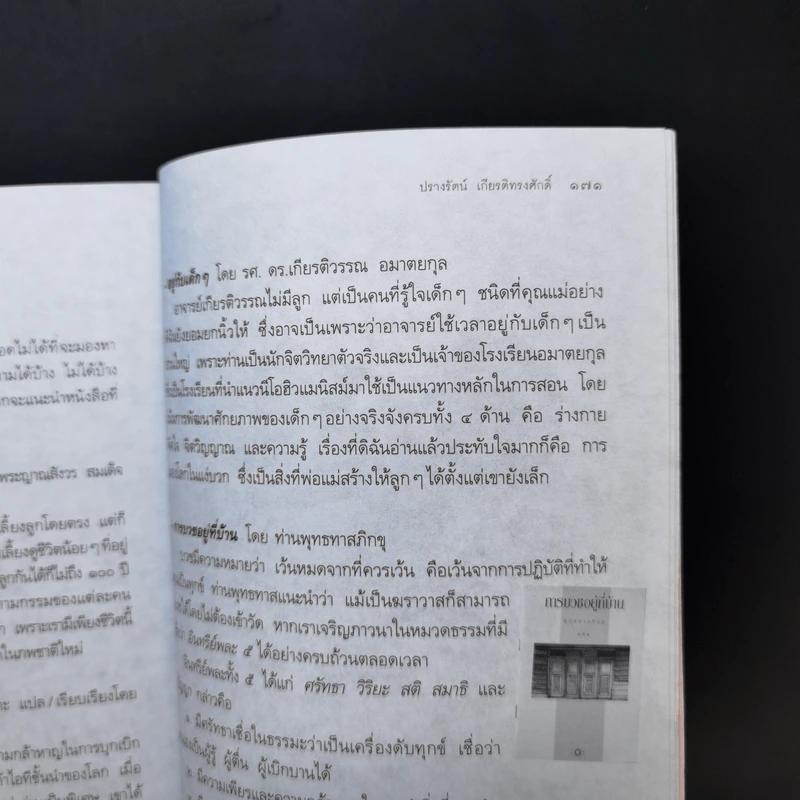 อดไม่ได้ที่จะมองหา
ามได้บ้าง ไม่ได้บ้าง
กจะแนะนำหนังสือที่
พระญาณสังวร สมเด็จ
ลี้ยงลูกโดยตรง แต่ก็
ลี้ยงดูชีวิตน้อยๆ ที่อยู่
ลูกกันได้ก็ไม่ถึง ๑๐๐ ปี
ามกรรมของแต่ละคน
เพราะเรามีเพียงชีวิตนี้
นภพชาติใหม่
แปล/เรียบเรียงโดย
ามกล้าหาญในการบุกเบิก
ไอทีชั้นนำของโลก เมื่อ
เขาได้
ปรางรัตน์ เกียรติทรงศักดิ์ ๑๗๑
อยู่กับเด็กๆ โดย รศ. ดร.เกียรติวรรณ อมาตยกุล
อาจารย์เกียรติวรรณไม่มีลูก แต่เป็นคนที่รู้ใจเด็กๆ ชนิดที่คุณแม่อย่าง
ยังยอมยกนิ้วให้ ซึ่งอาจเป็นเพราะว่าอาจารย์ใช้เวลาอยู่กับเด็กๆ เป็น
ใหญ่ เพราะท่านเป็นนักจิตวิทยาตัวจริงและเป็นเจ้าของโรงเรียนอมาตยกุล
เป็นโรงเรียนที่นำแนวนีโอฮิวแมนิสม์มาใช้เป็นแนวทางหลักในการสอน โดย
การพัฒนาศักยภาพของเด็กๆ อย่างจริงจังครบทั้ง ๔ ด้าน คือ ร่างกาย
จิตวิญญาณ และความรู้ เรื่องที่ดิฉันอ่านแล้วประทับใจมากก็คือ การ
โลกในแง่บวก ซึ่งเป็นสิ่งที่พ่อแม่สร้างให้ลูกๆ ได้ตั้งแต่เขายังเล็ก
การบวชอยู่ที่บ้าน โดย ท่านพุทธทาสภิกขุ
บวชมีความหมายว่า เว้นหมดจากที่ควรเว้น คือเว้นจากการปฏิบัติที่ทำให้
เป็นทุกข์ ท่านพุทธทาสแนะนำว่า แม้เป็นฆราวาสก็สามารถ
ได้โดยไม่ต้องเข้าวัด หากเราเจริญภาวนาในหมวดธรรมที่มี
อินทรีย์พละ ๕ ได้อย่างครบถ้วนตลอดเวลา
อินทรีย์พละทั้ง ๕ ได้แก่ ศรัทธา วิริยะ สติ สมาธิ และ
กล่าวคือ
๑. มีศรัทธาเชื่อในธรรมะว่าเป็นเครื่องดับทุกข์ เชื่อว่า
เป็นผู้รู้ ผู้ตื่น ผู้เบิกบานได้
๒. มีความเพียรและความ
การบวชอยู่ที่บ้าน